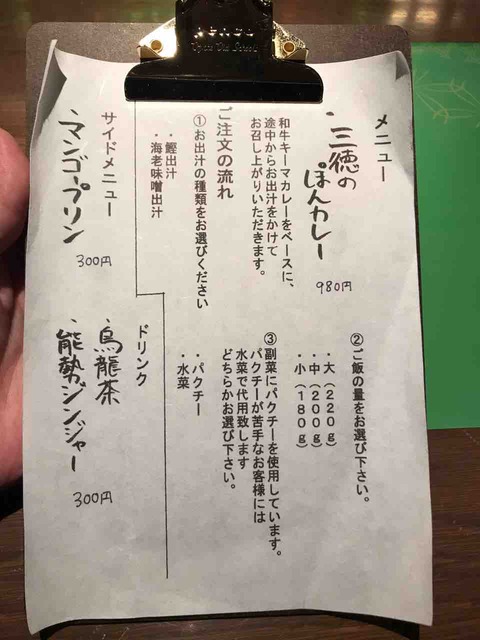 メニュー
・三徳の
ぽんカレー
980円
和牛キーマカレーをベースに、
途中からお出汁をかけて
お召し上がりいただきます。
ご注文の流れ
①お出汁の種類をお選びください
・鰹出汁
・海老味噌出汁
②ご飯の量をお選び下さい。
・大（220g）
・中（200g）
・小（180g）
③副菜にパクチーを使用しています。
パクチーが苦手なお客様には
水菜で代用致します
どちらかお選び下さい。
・パクチー
・水菜
サイドメニュー
・マンゴープリン
300円
ドリンク
・烏龍茶
・能勢ジンジャー
300円